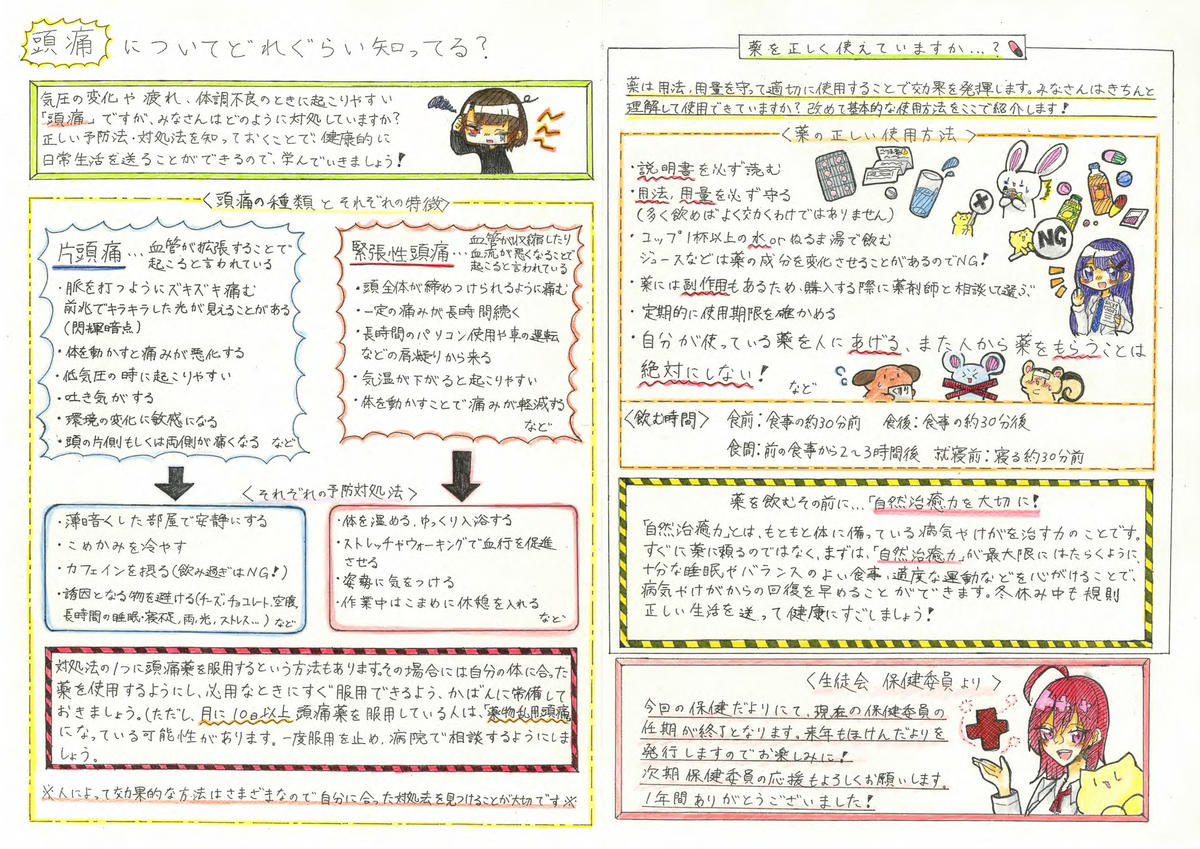 頭痛についてどれぐらい知ってる?
気圧の変化や疲れ、体調不良のときに起こりやすい
「頭痛」ですが、みなさんはどのように対処していますか?
正しい予防法・対処法を知っておくことで、健康的に
日常生活を送ることができるので、学んでいきましょう!
〈頭痛の種類とそれぞれの特徴〉
片頭痛…血管が拡張することで
起こると言われている
・脈を打つようにズキズキ痛む
前兆でキラキラした光が見えることがある
(閃輝暗点)
・体を動かすと痛みが悪化する
・低気圧の時に起こりやすい
・吐き気がする
・環境の変化に敏感になる
・頭の片側もしくは両側が痛くなる など
緊張性頭痛…血管が収縮したり
血流が悪くなることで
起こると言われている
・頭全体が締めつけられるように痛む
・一定の痛みが長時間続く
・長時間のパソコン使用や車の運転
などの肩凝りから来る
・気温が下がると起こりやすい
・体を動かすことで痛みが軽減する
など
〈それぞれの予防対処法〉
・薄暗くした部屋で安静にする
・こめかみを冷やす
・カフェインを摂る(飲み過ぎはNG!)
・誘因となる物を避ける(チーズ、チョコレート、空腹、
長時間の睡眠・寝不足、雨、光、ストレス…) など
・体を温める、ゆっくり入浴する
・ストレッチやウォーキングで血行を促進
させる
・姿勢に気をつける
・作業中はこまめに休憩を入れる
など
対処法の1つに頭痛薬を服用するという方法もあります。その場合には自分の体に合った
薬を使用するようにし、必用なときにすぐ服用できるよう、かばんに常備して
おきましょう。(ただし、月に10日以上頭痛薬を服用している人は、「薬物乱用頭痛」
になっている可能性があります。一度服用を止め、病院で相談するようにしま
しょう。
※人によって効果的な方法はさまざまなので自分に合った対処法を見つけることが大切です※
薬を正しく使えていますか…?
薬は用法、用量を守って適切に使用することで効果を発揮します。みなさんはきちんと
理解して使用できていますか?改めて基本的な使用方法をここで紹介します!
〈薬の正しい使用方法〉
・説明書を必ず読む
・用法、用量を必ず守る
(多く飲めばよく効くわけではありません)
・コップ1杯以上の水orぬるま湯で飲む
ジュースなどは薬の成分を変化させることがあるのでNG!
・薬には副作用もあるため、購入する際に薬剤師と相談して選ぶ
・定期的に使用期限を確かめる
・自分が使っている薬を人にあげる、また人から薬をもらうことは
絶対にしない! など
NG
くすり
〈飲む時間〉 食前:食事の約30分前 食後:食事の約30分後
食間:前の食事から2〜3時間後 就寝前:寝る約30分前
薬を飲むその前に…「自然治癒力を大切に!
「自然治癒力」とは、もともと体に備っている病気やけがを治す力のことです。
すぐに薬に頼るのではなく、まずは、「自然治癒力」が最大限にはたらくように、
十分な睡眠やバランスのよい食事、適度な運動などを心がけることで、
病気やけがからの回復を早めることができます。冬休み中も規則
正しい生活を送って健康にすごしましょう!
〈生徒会 保健委員より〉
今回の保健だよりにて、現在の保健委員の
任期が終了となります。来年もほけんだよりを
発行しますのでお楽しみに!
次期保健委員の応援もよろしくお願いします。
1年間ありがとうございました!